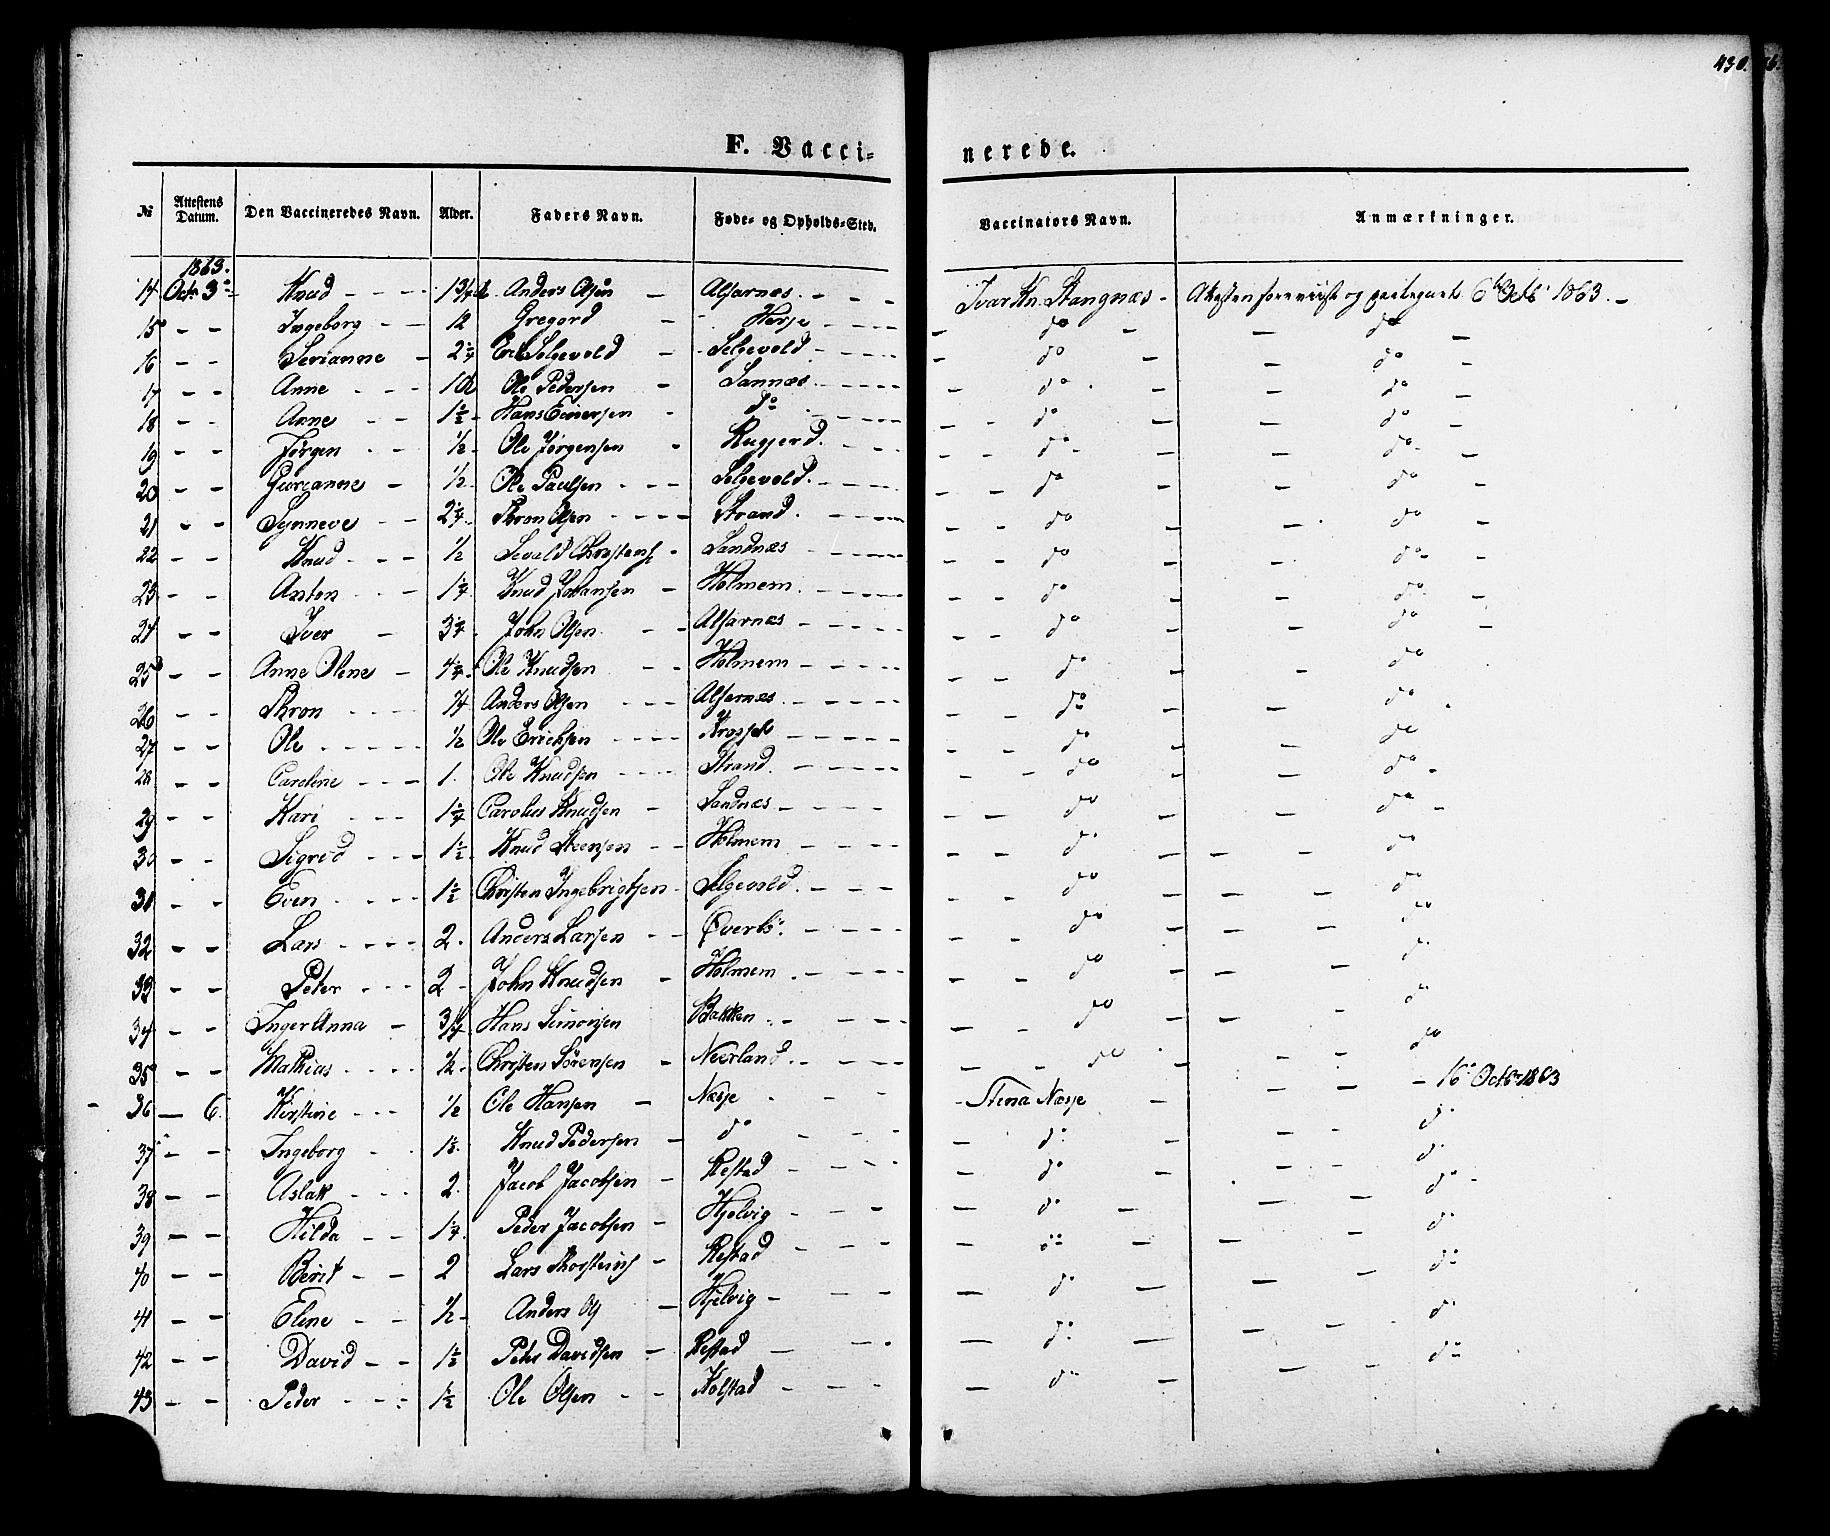 430.
F. Vaccinerede.
№ Attestens Datum. Den Vaccineredes Navn. Alder. Faders Navn. Føde- og Opholds-Sted. Vaccinators Navn. Anmærkninger.
1863.
14 Octr 3 Knud Anders Olsen Alfarnæs Ivar Kn. Stangnæs Attesten foreviist og 6 Octb 1863.
15 - - Ingeborg 12 Gregord Herje do do
16 - - Serianne - 2 1/4 Erik Selgevold Selgevold do do
17 - - Anne Ole Pedersen Sannæs do do
18 - - Anne 1 1/2 Hans Einersen do do do
19 - - Jørgen 1/2 Ole Jørgensen do do
20 - - Gurianne - 1/2 Ole Paulsen Selgevold do do
21 - - Synneve 2 1/4 Thron Olsen Strand do do
22 - - Knud 1/2 Sevald Christens Sandnæs do do
23 - - Anton 1 1/4 Knud Johansen Holmem do do
24 - - Iver 3 1/4 John Olsen Alfarnæs do do
25 - - Anne Oline 4 1/4 Ole Knudsen Holmem do do
26 - - Thron 1/4 Anders Olsen Alfarnæs do do
27 - - Ole 1/2 Ole Ericksen do do
28 - - Caroline 1 Ole Knudsen Strand do do
29 - - Kari 1 1/4 Carolus Knudsen Sandnæs do do
30 - - Sigrid 1 1/2 Knud Steensen Holmem do do
31 - - Even 1 1/2 Christen Ingebrigtsen Selgevold do do
32 - - Lars 2 Anders Larsen Øverb do do
33 - - Peter 2 John Knudsen Holmem do do
34 - - Inger Anna 3/4 Hans Simonsen Bakken do do
35 - - Mathias 1/2 Christen Sørensen Neerland do do
36 - 6 Kirstine 1/2 Ole Hansen Næsje Stina Næsje 16 Octbr 1863
37 - - Ingeborg Knud Pedersen do do do
38 - - Aslak 2 Jacob Jacobsen Restad do do
39 - - Hilda 1 1/4 Peder Jacobsen Hjelvig do do
40 - - Berit 2 Lars Thorstens Restad do do
41 - - Eline 1/2 Anders Ols Hjelvig do do
42 - - David 1 1/2 Peter Davidsen Restad do do
43 - - Peder 1 1/2 Ole Olsen Kolstad do do